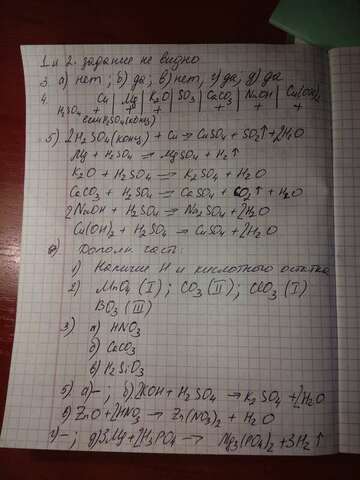 1 и 2. задание не видно
3. а) нет; б) да; в) нет, г) да, д) да
4. Cu | Mg | K2O | SO3 | CaCO3 | NaOH | Cu(OH)2
H2SO4 + + + + + +
если H2SO4(конц)
5) 2H2SO4(конц) + Cu → CuSO4 + SO2↑ + 2H2O
Mg + H2SO4 → MgSO4 + H2↑
K2O + H2SO4 → K2SO4 + H2O
CaCO3 + H2SO4 → CaSO4 + CO2↑ + H2O
2NaOH + H2SO4 → Na2SO4 + 2H2O
Cu(OH)2 + H2SO4 → CuSO4 + 2H2O
Дополн. часть
1) Наличие H и кислотного остатка
2) MnO4 (I); CO3 (II); ClO3 (I)
BO3 (III)
3) а) HNO3
б) CaCO3
в) H2SiO3
5) а) -; б) 2KOH + H2SO4 → K2SO4 + 2H2O
в) ZnO + 2HNO3 → Zn(NO3)2 + H2O
г) -; д) 3Mg + 2H3PO4 → Mg3(PO4)2 + 3H2↑